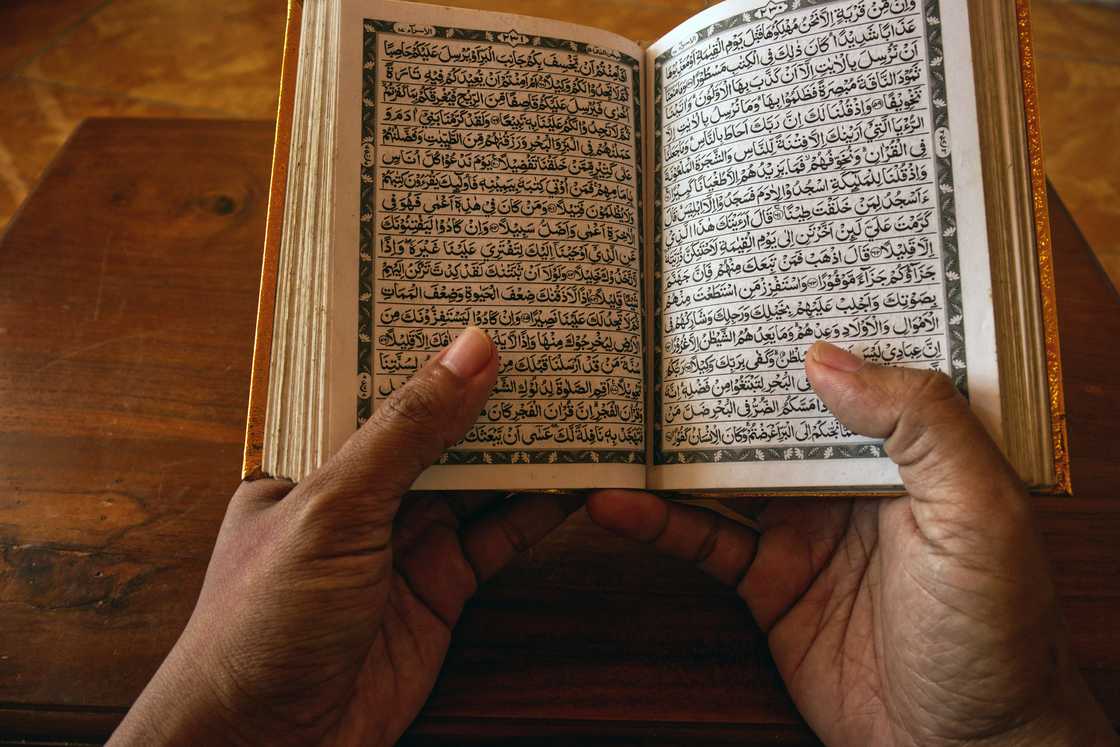 ٢٣٠
وَإِنْ مِّنْ قَرْيَةٍ إِلَّا نَحْنُ مُهْلِكُوهَا قَبْلَ يَوْمِ الْقِيٰمَةِ أَوْ مُعَذِّبُوهَا
عَذَابًا شَدِيدًا كَانَ ذٰلِكَ فِي الْكِتٰبِ مَسْطُورًا وَمَا مَنَعَنَا
أَنْ نُّرْسِلَ بِالْاٰيٰتِ إِلَّا أَنْ كَذَّبَ بِهَا الْأَوَّلُونَ وَاٰتَيْنَا
ثَمُودَ النَّاقَةَ مُبْصِرَةً فَظَلَمُوا بِهَا وَمَا نُرْسِلُ بِالْاٰيٰتِ إِلَّا
تَخْوِيفًا ٥٩ وَإِذْ قُلْنَا لَكَ إِنَّ رَبَّكَ أَحَاطَ بِالنَّاسِ وَمَا جَعَلْنَا
الرُّءْيَا الَّتِي أَرَيْنٰكَ إِلَّا فِتْنَةً لِّلنَّاسِ وَالشَّجَرَةَ الْمَلْعُونَةَ
فِي الْقُرْاٰنِ وَنُخَوِّفُهُمْ فَمَا يَزِيدُهُمْ إِلَّا طُغْيَانًا كَبِيرًا
وَإِذْ قُلْنَا لِلْمَلٰٓئِكَةِ اسْجُدُوا لِاٰدَمَ فَسَجَدُوا إِلَّا إِبْلِيسَ قَالَ
ءَأَسْجُدُ لِمَنْ خَلَقْتَ طِينًا ٦١ قَالَ أَرَءَيْتَكَ هٰذَا الَّذِي
كَرَّمْتَ عَلَيَّ لَئِنْ أَخَّرْتَنِ إِلٰى يَوْمِ الْقِيٰمَةِ لَأَحْتَنِكَنَّ ذُرِّيَّتَهُ
إِلَّا قَلِيلًا ٦٢ قَالَ اذْهَبْ فَمَنْ تَبِعَكَ مِنْهُمْ فَإِنَّ جَهَنَّمَ
جَزَاؤُكُمْ جَزَاءً مَّوْفُورًا ٦٣ وَاسْتَفْزِزْ مَنِ اسْتَطَعْتَ مِنْهُمْ
بِصَوْتِكَ وَأَجْلِبْ عَلَيْهِمْ بِخَيْلِكَ وَرَجِلِكَ وَشَارِكْهُمْ فِي
الْأَمْوَالِ وَالْأَوْلَادِ وَعِدْهُمْ وَمَا يَعِدُهُمُ الشَّيْطٰنُ إِلَّا غُرُورًا
إِنَّ عِبَادِي لَيْسَ سُلْطٰنٌ وَكَفٰى بِرَبِّكَ وَكِيلًا
فِي الْبَحْرِ لِتَبْتَغُوا مِنْ فَضْلِهِ إِنَّهُ
مَسَّكُمُ الضُّرُّ فِي الْبَحْرِ ضَلَّ مَنْ
إِلَى الْبَرِّ أَعْرَضْتُمْ وَكَانَ الْإِنْسَانُ كَفُورًا
٢٣١
أَفَأَمِنْتُمْ أَنْ يَّخْسِفَ بِكُمْ جَانِبَ الْبَرِّ أَوْ يُرْسِلَ عَلَيْكُمْ حَاصِبًا
ثُمَّ لَا تَجِدُوا لَكُمْ وَكِيلًا أَمْ أَمِنْتُمْ أَنْ يُّعِيدَكُمْ فِيهِ تَارَةً
أُخْرٰى فَيُرْسِلَ عَلَيْكُمْ قَاصِفًا مِّنَ الرِّيحِ فَيُغْرِقَكُمْ بِمَا كَفَرْتُمْ
ثُمَّ لَا تَجِدُوا لَكُمْ عَلَيْنَا بِهِ تَبِيعًا وَلَقَدْ كَرَّمْنَا بَنِي اٰدَمَ وَ
حَمَلْنٰهُمْ فِي الْبَرِّ وَالْبَحْرِ وَرَزَقْنٰهُمْ مِّنَ الطَّيِّبٰتِ وَفَضَّلْنٰهُمْ
عَلٰى كَثِيرٍ مِّمَّنْ خَلَقْنَا تَفْضِيلًا يَوْمَ نَدْعُوا كُلَّ أُنَاسٍ
بِإِمَامِهِمْ فَمَنْ أُوتِيَ كِتٰبَهُ بِيَمِينِهِ فَأُولٰٓئِكَ يَقْرَءُونَ كِتٰبَهُمْ
وَلَا يُظْلَمُونَ فَتِيلًا وَمَنْ كَانَ فِي هٰذِهِ أَعْمٰى فَهُوَ فِي
الْاٰخِرَةِ أَعْمٰى وَأَضَلُّ سَبِيلًا وَإِنْ كَادُوا لَيَفْتِنُونَكَ
عَنِ الَّذِي أَوْحَيْنَا إِلَيْكَ لِتَفْتَرِيَ عَلَيْنَا غَيْرَهُ وَإِذًا
لَّاتَّخَذُوكَ خَلِيلًا وَلَوْلَا أَنْ ثَبَّتْنٰكَ لَقَدْ كِدْتَّ تَرْكَنُ إِلَيْهِمْ
شَيْئًا قَلِيلًا إِذًا لَّأَذَقْنٰكَ ضِعْفَ الْحَيٰوةِ وَضِعْفَ الْمَمَاتِ
ثُمَّ لَا تَجِدُ لَكَ عَلَيْنَا نَصِيرًا وَإِنْ كَادُوا لَيَسْتَفِزُّونَكَ مِنَ
الْأَرْضِ لِيُخْرِجُوكَ مِنْهَا وَإِذًا لَّا خِلٰفَكَ إِلَّا قَلِيلًا
سُنَّةَ مَنْ قَدْ أَرْسَلْنَا قَبْلَكَ مِنْ لِسُنَّتِنَا
تَحْوِيلًا أَقِمِ الصَّلٰوةَ لِدُلُوكِ الشَّمْسِ
وَقُرْاٰنَ الْفَجْرِ إِنَّ قُرْاٰنَ الْفَجْرِ كَانَ
فَتَهَجَّدْ بِهِ نَافِلَةً لَّكَ عَسٰى أَنْ يَّبْعَثَكَ